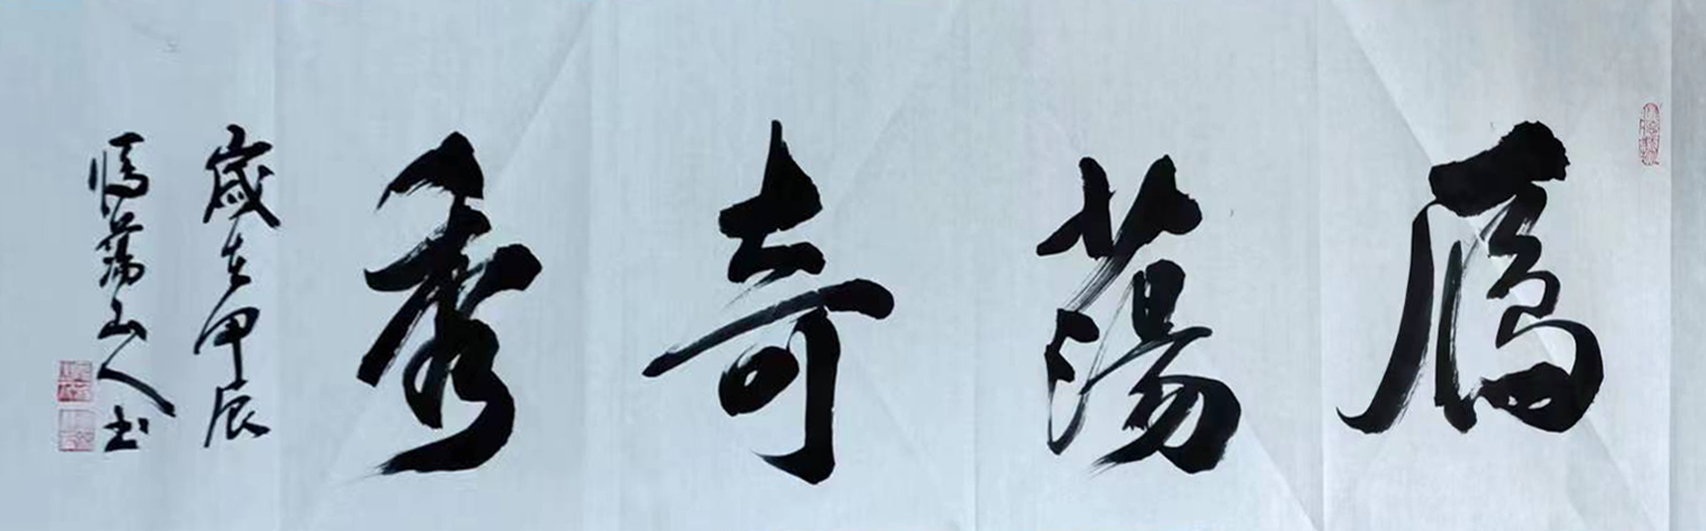 雁蕩奇秀
歲在甲辰
雁蕩山人书